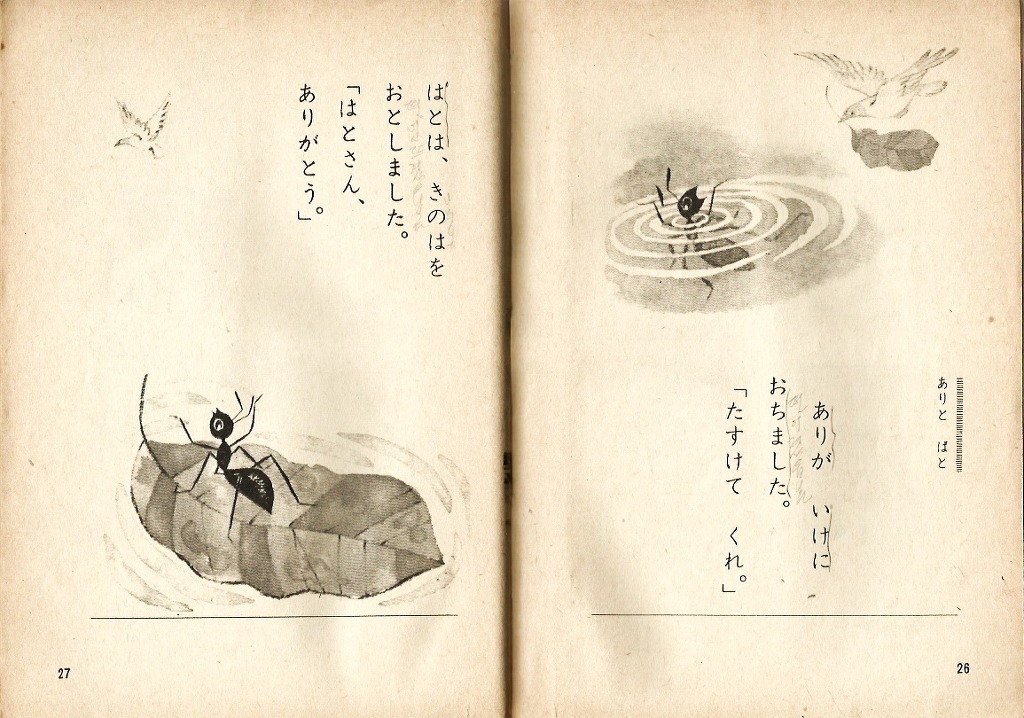 ありと はと
ありが いけに
おちました。
「たすけて くれ。」
26
はとは、きのはを
おとしました。
「はとさん、
ありがとう。」
27